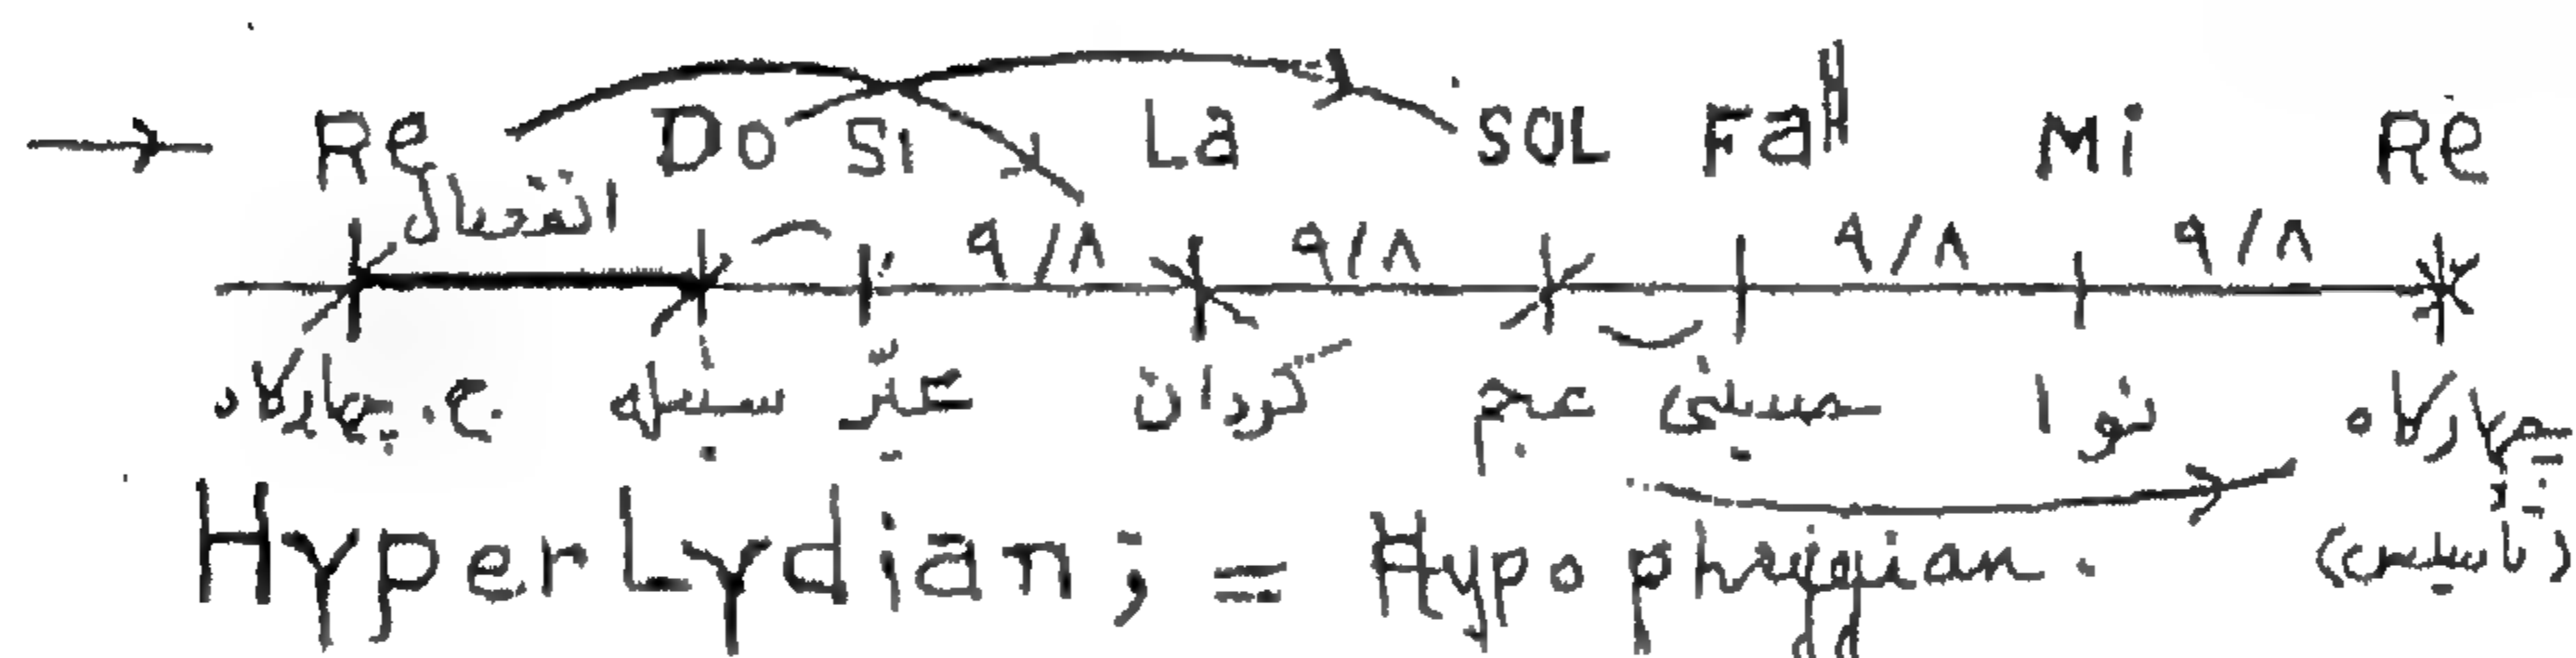 → Re Do Si La SOL Fa# Mi Re
انفصال ٩/٨ ٩/٨ ٩/٨ ٩/٨
ج. چهارکاه سنبله كردان عجم حسيني نوا چهارکاه
(تأسيس)
HyperLydian; = Hypophrygian.